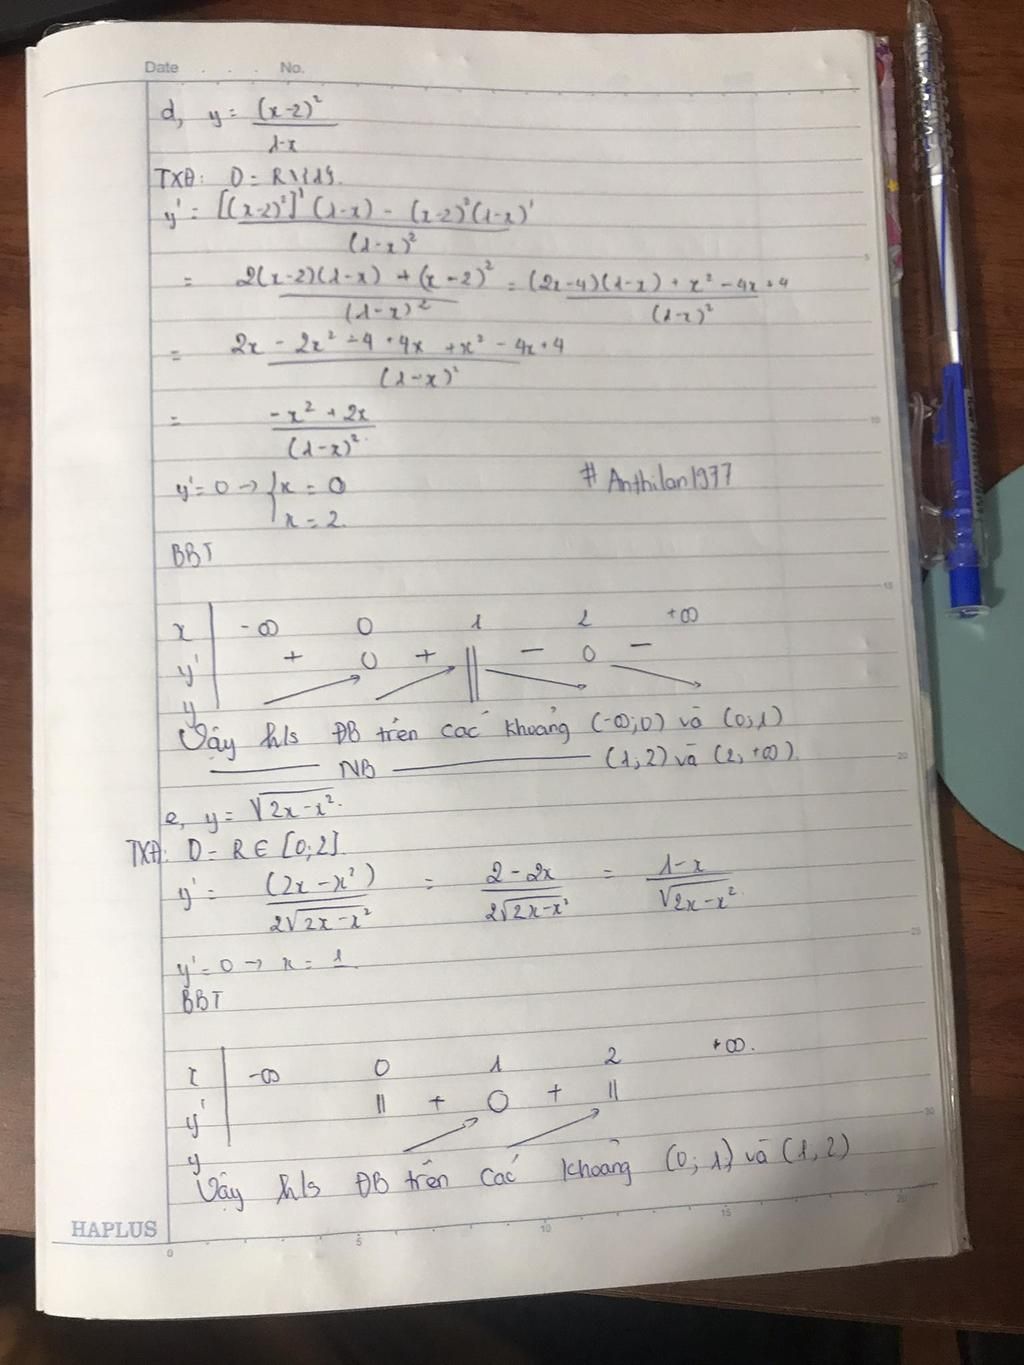 Date . . . No.
d, y = (x-2)² / 1-x
TXĐ: D = R\{1}.
y' = [(x-2)²]'(1-x) - (x-2)²(1-x)' / (1-x)²
= 2(x-2)(1-x) + (x-2)² / (1-x)² = (2x-4)(1-x) + x² - 4x + 4 / (1-x)²
= 2x - 2x² - 4 + 4x + x² - 4x + 4 / (1-x)²
= -x² + 2x / (1-x)²
y' = 0 → { x = 0
x = 2.
# Anthilan1977
BBT
x -∞ 0 1 2 +∞
y' + 0 + || - 0 -
y
Vậy h/s ĐB trên các khoảng (-∞;0) và (0;1)
NB (1;2) và (2;+∞).
e, y = √2x-x².
TXĐ: D = R ∈ [0;2]
y' = (2x-x²) / 2√2x-x² = 2-2x / 2√2x-x² = 1-x / √2x-x².
y' = 0 → x = 1.
BBT
x -∞ 0 1 2 +∞.
y' || + 0 + ||
y
Vậy h/s ĐB trên các khoảng (0;1) và (1,2)
HAPLUS
0 5 10 15 20